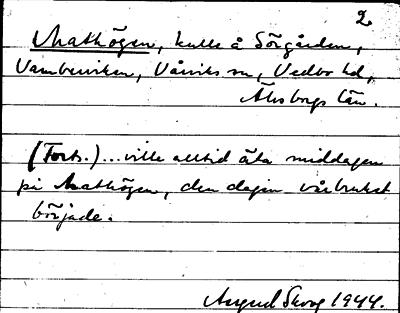 2.
Mathögen, kulle å Sörgården,
Vamberviken, Vårviks sn, Vedbo hd,
Älvsborgs län.
(Forts.) ... ville alltid äta middagen
på Mathögen, den dagen vårbruket
började.
Skog 1944.